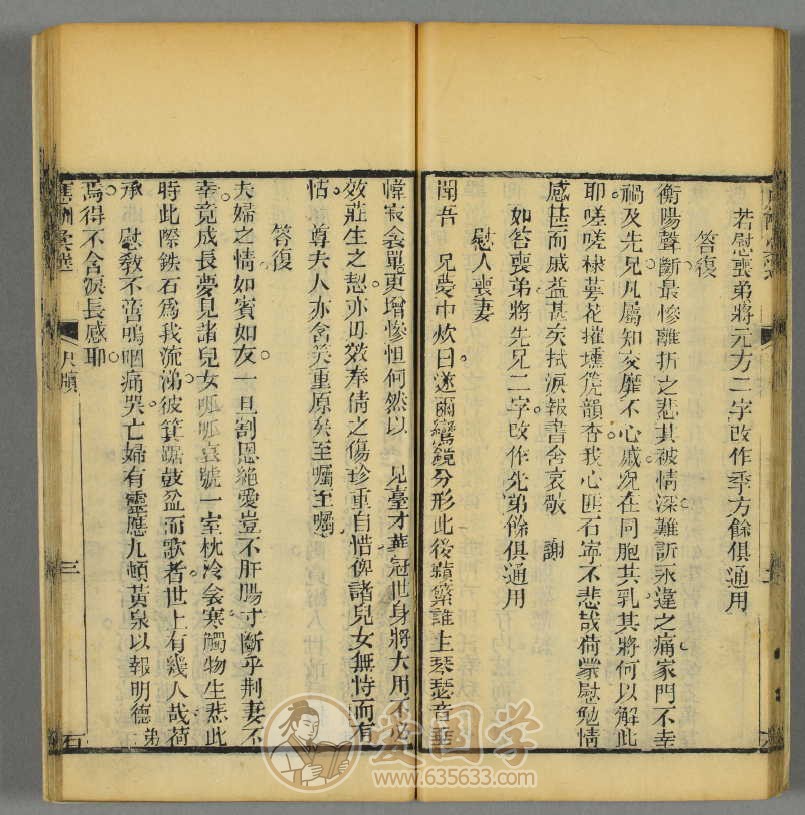 若慰喪弟將元方二字改作季方餘俱通用
答復
衡陽聲斷最慘離折之悲其被情深難訴永違之痛家門不幸
禍及先兄凡屬知交靡不心戚況在同胞共乳其將何以解此
耶嗟嗟棣萼花摧壎箎韻杳我心匪石寧不悲哉荷蒙慰勉情
感甚而戚益甚矣拭淚報書含哀敬 謝
如答喪弟將先兄二字改作先弟餘俱通用
慰人喪妻
聞吾 兄夢中炊臼遂爾鸞鏡分形此後蘋蘩誰主琴瑟音乖
幃寂衾單更增慘怛何然以 兄臺才華冠世身將大用不必
效莊生之恝亦毋效奉倩之傷珍重自惜俾諸兒女無恃而有
怙 尊夫人亦含笑重原矣至囑至囑
答復
夫婦之情如賓如友一旦割恩絕愛豈不肝腸寸斷乎荆妻不
幸竟成長夢見諸兒女呱呱哀號一室枕冷衾寒觸物生悲此
時此際鉄石爲我流涕彼箕踞鼓盆而歌者世上有幾人哉荷
承 慰敎不啻嗚咽痛哭亡婦有靈應九頓黃泉以報明德二弟
焉得不含淚長感耶
應酬彙選 尺牘 三
愛国学
www.635633.com